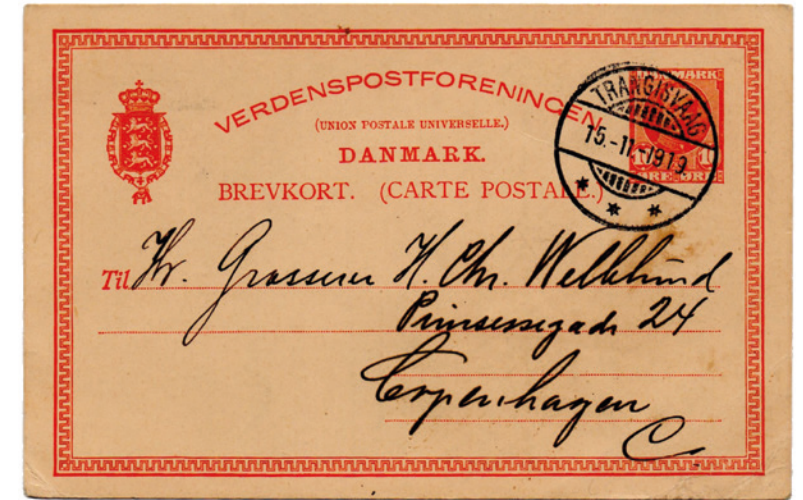 VERDENSPOSTFORENINGEN.
(UNION POSTALE UNIVERSELLE.)
DANMARK.
BREVKORT. (CARTE POSTALE.)
DANMARK
10 10
ØRE ØRE
TRANGISVAAG
15.-11.-1919
Til Hr. Grosserer H. Chr. Wellblund
Prinsessegade 24
Copenhagen
C